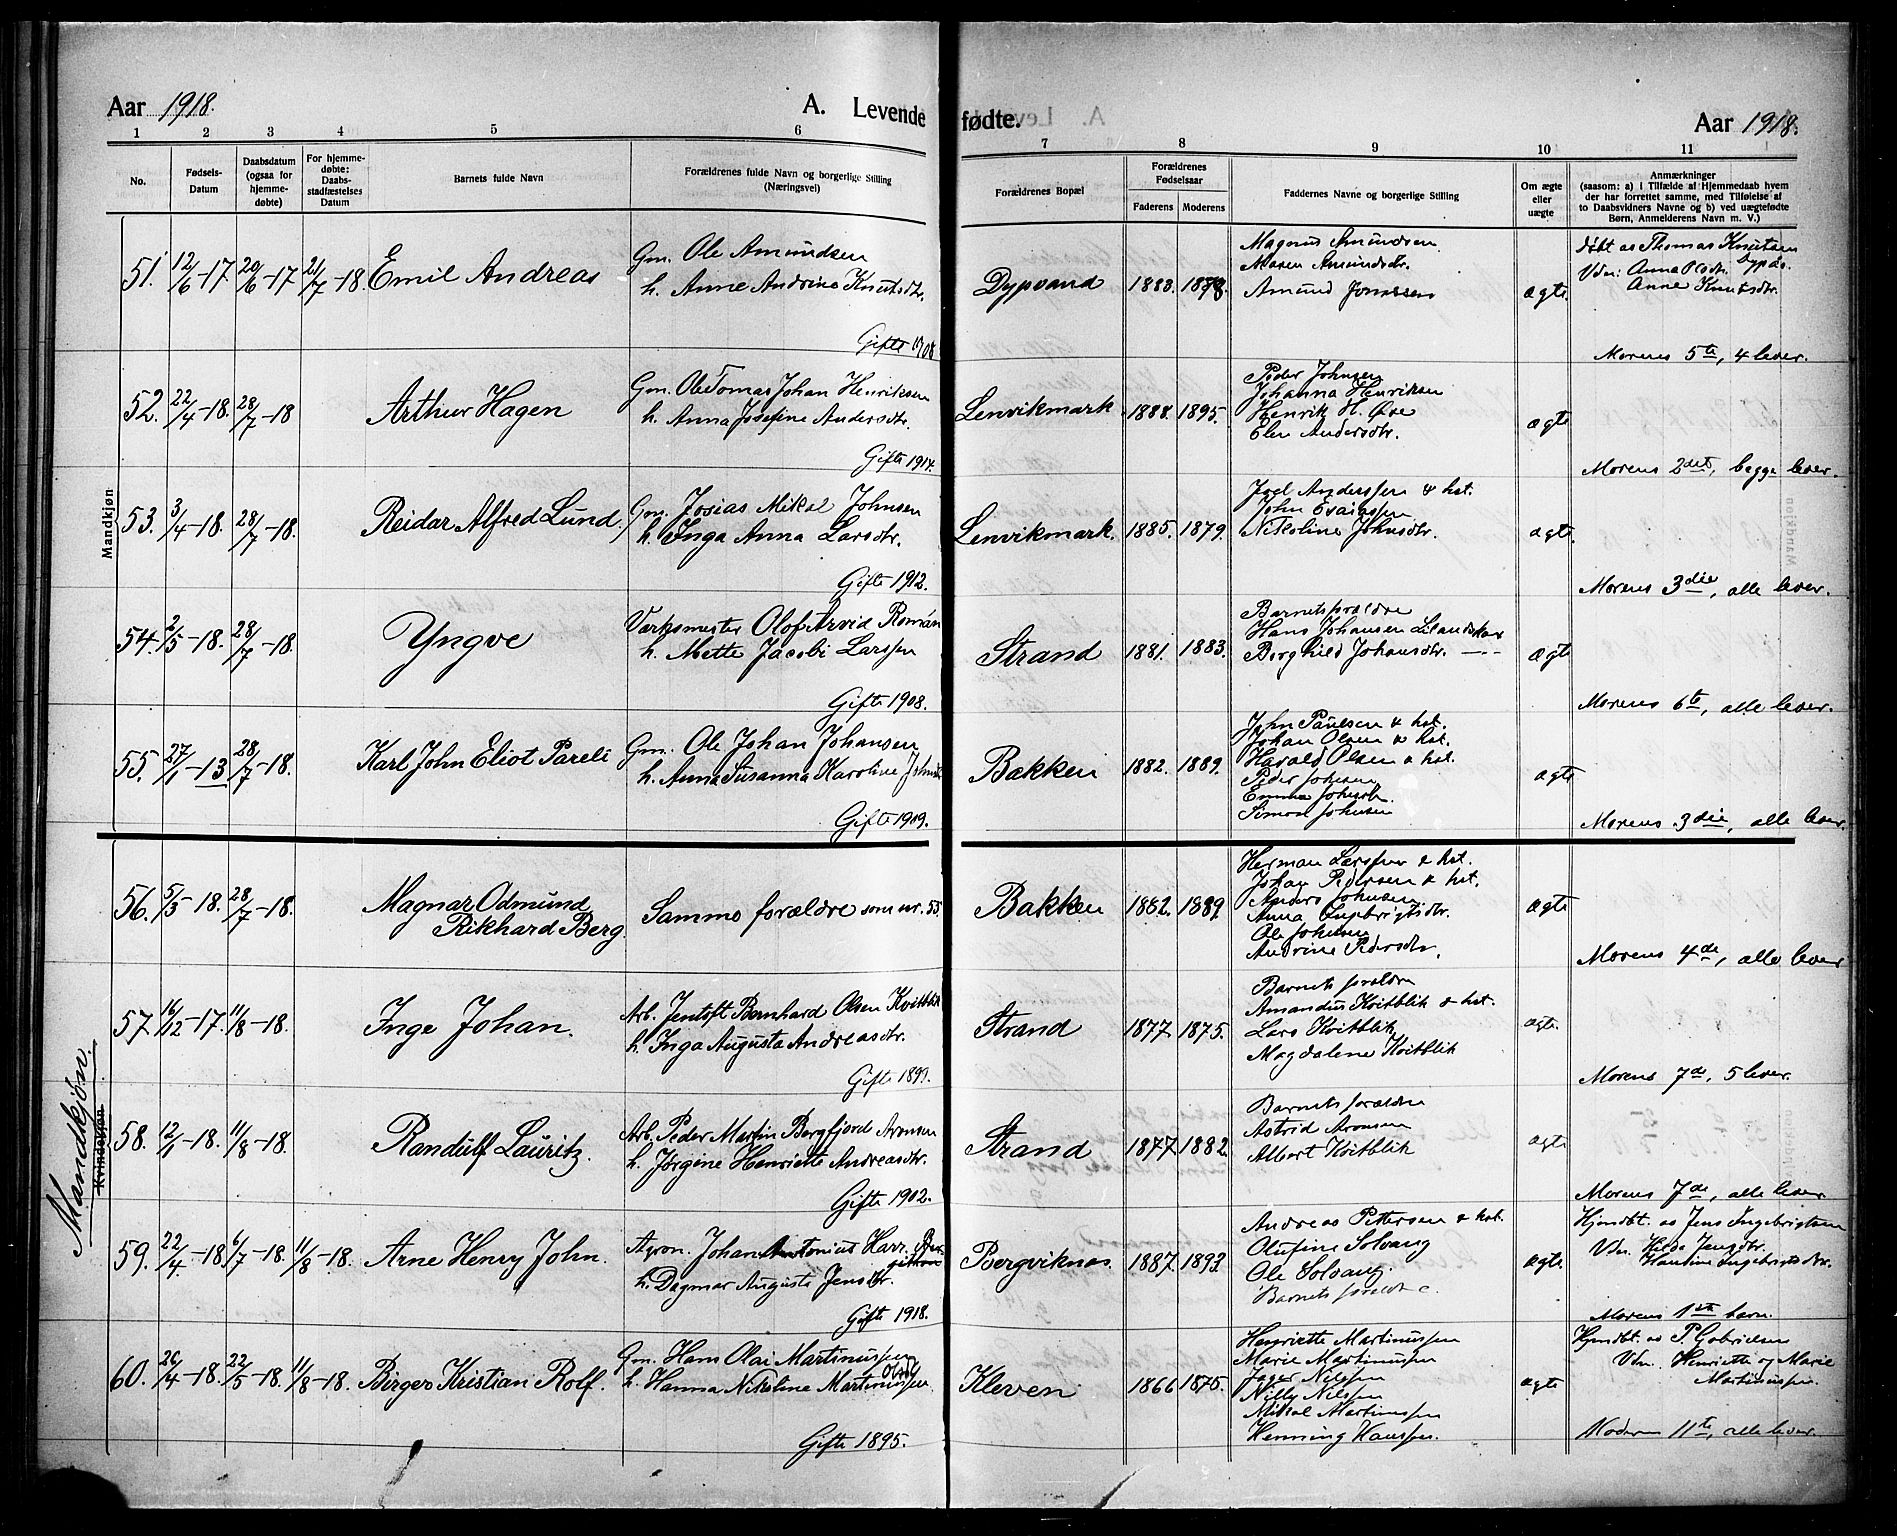 Aar 1918.
A. Levende
fødte.
Aar 1918.
1 2 3 4 5 6 7 8 9 10 11
No.
Fødsels-
Datum
Daabsdatum
(ogsaa for
hjemme-
døbte)
For hjemme-
døbte:
Daabs-
stadfæstelses
Datum
Barnets fulde Navn
Forældrenes fulde Navn og borgerlige Stilling
(Næringsvei)
Forældrenes Bopæl
Forældrenes
Fødselsaar
Faderens Moderens
Faddernes Navne og borgerlige Stilling
Om ægte
eller
uægte
Anmærkninger
(saasom: a) i Tilfælde af Hjemmedaab hvem
der har forrettet samme, med Tilføielse af
to Daabsvidners Navne og b) ved uægtefødte
Børn, Anmelderens Navn m. V.)
Mandkjøn
51. 12/6-17 20/6-17 21/7-18. Emil Andreas
Gm. Ole Amundsen
h. Anne Andrine Knutsdtr.
Gifte 1908
Dypvand 1883. 1878.
Magnus Amundsen
Maren Amundsdtr.
Amund Jonassen
ægte
døbt av Thomas Knutsen
Vdn: Anna Olsdtr. Dypås.
Anne Knutsdtr.
Morens 5te, 4 lever.
52. 22/4-18. 28/7-18 Arthur Hagen
Gm. Ole Tomas Johan Henriksen
h. Anna Josefine Andersdtr.
Gifte 1914.
Lenvikmark 1888. 1895.
Peder Johnsen
Johanna Henriksen
Henrik H. Øre
Elen Andersdtr.
ægte
Morens 2det, begge lever.
53. 3/4-18. 28/7-18. Reidar Alfred Lund.
Gm. Josias Mikal Johnsen
h. Inga Anna Larsdtr.
Gifte 1912.
Lenvikmark. 1885. 1879.
Joel Anderssen & hst.
John Esaiassen
Nikoline Johnsdtr.
ægte.
Morens 3die, alle lever.
54. 2/5-18. 28/7-18. Yngve
Værksmester Olof Arvid Román
h. Mette Jacobi Larssen
Gifte 1908.
Strand 1881. 1883.
Barnets forældre
Hans Johansen
Borghild Johansdtr. —"—
ægte
Morens 6te, alle lever.
55. 27/1-13 28/7-18. Karl John Eliot Pareli
Gm. Ole Johan Johansen
h. Anna Susanna Karoline
Gifte 1909.
Bakken 1882. 1889.
John Paulsen & hst.
Johan Olsen & hst.
Harald Olsen & hst.
Peder Johnsen
Emma Johnsdtr.
Simon Johnsen
ægte
Morens 3die, alle lever.
Mandkjøn.
Kindekjøn
56. 5/3-18. 28/7-18. Magnar Odmund
Rikhard Berg.
Samme forældre som nr. 55.
Bakken 1882. 1889
Herman Larssen & hst.
Johan Pedersen & hst.
Anders Johnsen
Anna Ingebrigtsdtr.
Ole Johnsen
Andrine Pedersdtr.
ægte
Morens 4de, alle lever
57. 16/12-17. 11/8-18. Inge Johan.
Arb. Jentoft Bernhard Olsen Kvitblik
h. Inga Augusta Andreasdtr.
Gifte 1899.
Strand 1877. 1875.
Barnets forældre
Amandus Kvitblik & hst.
Lars Kvitblik
Magdalene Kvitblik
ægte.
Morens 7de, 5 lever.
58. 12/1-18. 11/8-18. Randulf Lauritz.
Arb. Peder Martin Bergfjord Aronsen
h. Jørgine Henriette Andreasdtr.
Gifte 1902.
Strand 1877. 1882.
Barnets forældre
Astrid Aronsen
Albert Kvitblik
ægte
Morens 7de, alle lever.
59. 22/4-18 6/7-18. 11/8-18. Arne Henry John.
Agron. Johan Antonius Harr.
h. Dagmar Augusta Jensdtr.
Gifte 1918.
Bergviknes. 1887. 1893
Andreas Pettersen & hst.
Olufine Solvang
Ole Solvang
Barnets forældre
ægte
Hjmdbt. av Jens Ingebrigtsen
Vdn. Hilda Jensdtr.
Hantine Ingebrigtsdtr.
Morens 1ste barn.
60. 26/4-18. 22/5-18. 11/8-18. Birger Kristian Rolf.
Gm. Hans Olai Martinussen
h. Hanna Nikoline Martinussen
Gifte 1895.
Kleven 1866 1875.
Henriette Martinussen
Marie Martinussen
Jager Nilssen
Nilly Nilssen
Mikal Martinussen
Henning Hanssen.
ægte
Hjmdbt. av P. Gabrielsen
Vdn. Henriette og Marie
Martinussen.
Moderens 11te, alle lever.